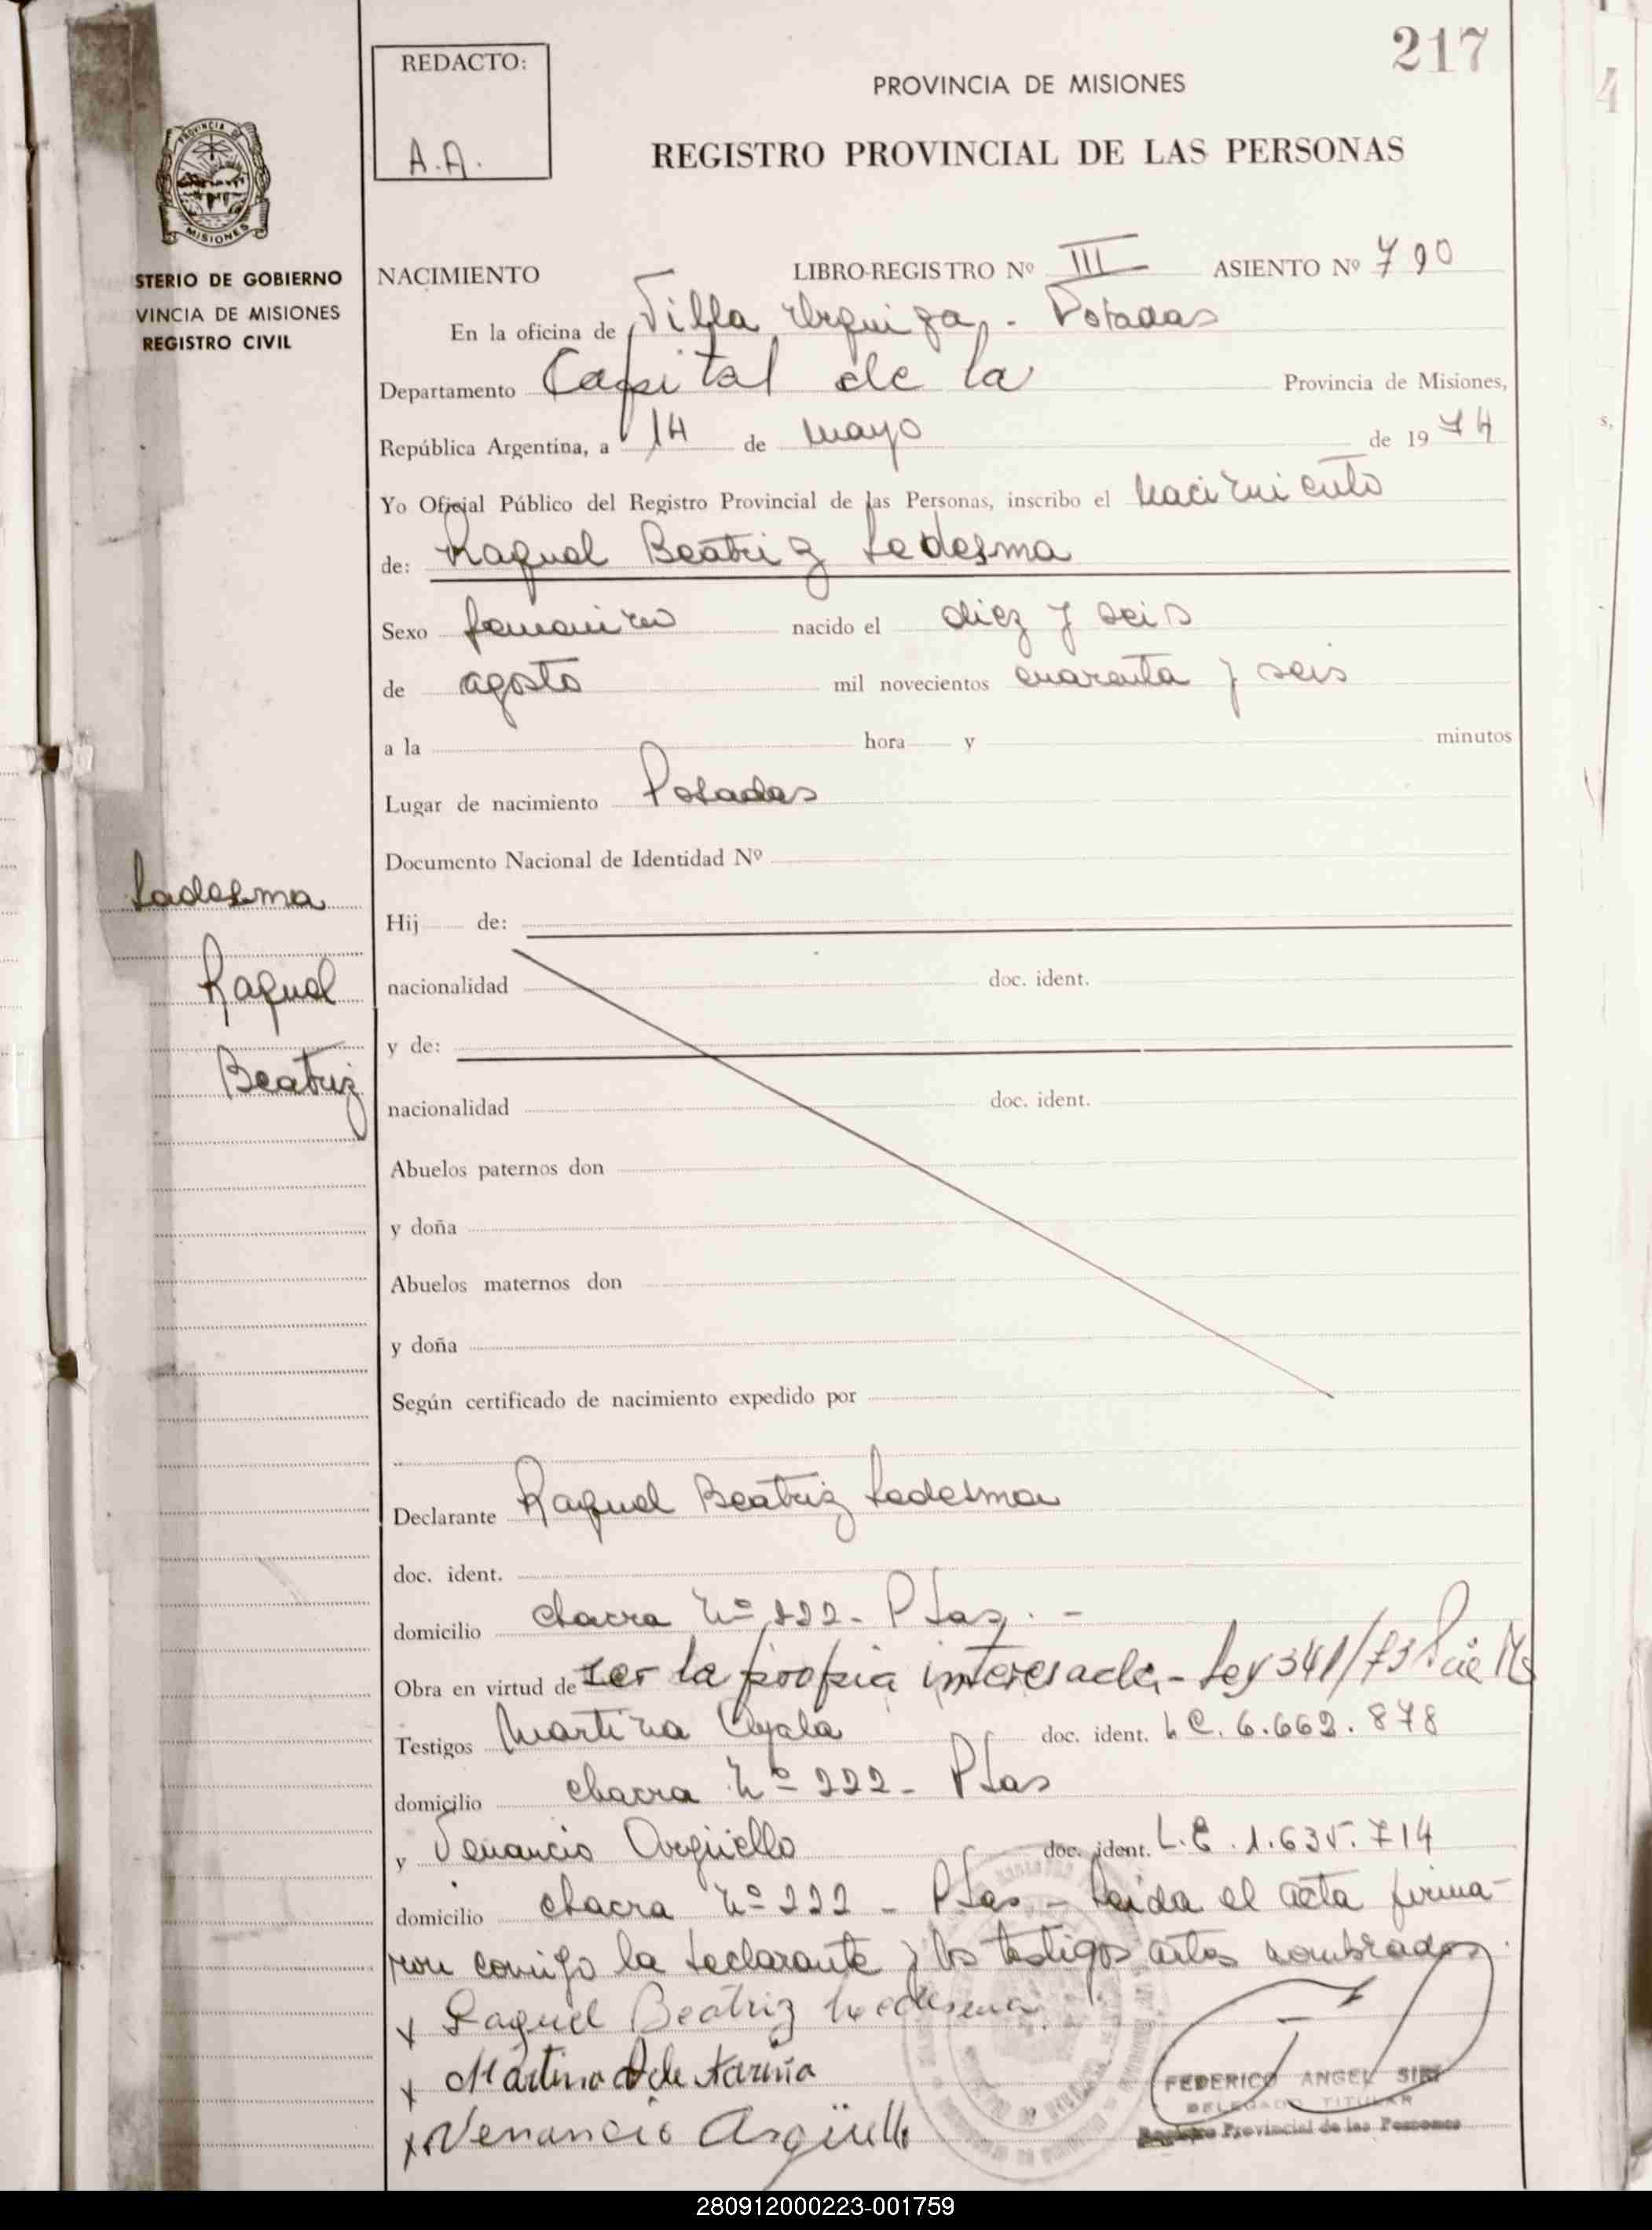 217
REDACTO:
A.A.
PROVINCIA DE MISIONES
REGISTRO PROVINCIAL DE LAS PERSONAS
PROVINCIA DE
MISIONES
STERIO DE GOBIERNO
VINCIA DE MISIONES
REGISTRO CIVIL
NACIMIENTO LIBRO-REGISTRO Nº III ASIENTO Nº 790
En la oficina de Villa Urquiza - Posadas
Departamento Capital de la Provincia de Misiones,
República Argentina, a 14 de mayo de 1974
Yo Oficial Público del Registro Provincial de las Personas, inscribo el nacimiento
de: Raquel Beatriz Ledesma
Sexo femenino nacido el diez y seis
de agosto mil novecientos cuarenta y seis
a la hora y minutos
Lugar de nacimiento Posadas
Documento Nacional de Identidad Nº
Ledesma
Raquel
Beatriz
Hij de:
nacionalidad doc. ident.
y de:
nacionalidad doc. ident.
Abuelos paternos don
y doña
Abuelos maternos don
y doña
Según certificado de nacimiento expedido por
Declarante Raquel Beatriz Ledesma
doc. ident.
domicilio chacra Nº 222 - Pdas. -
Obra en virtud de ser la propia interesada - Ley 341/73
Testigos Martina Ayala doc. ident. L C. 6.662.878
domicilio chacra Nº 222 - Pdas
y Venancio Argüello doc. ident. L.E. 1.635.714
domicilio chacra Nº 222 - Pdas - Leida el acta firma-
ron conmigo la declarante y los testigos antes nombrados.
x Raquel Beatriz Ledesma
x Martina A de
x Venancio Argüello
FEDERICO ANGEL SIRI
DELEGADO TITULAR
Registro Provincial de las Personas
280912000223-001759